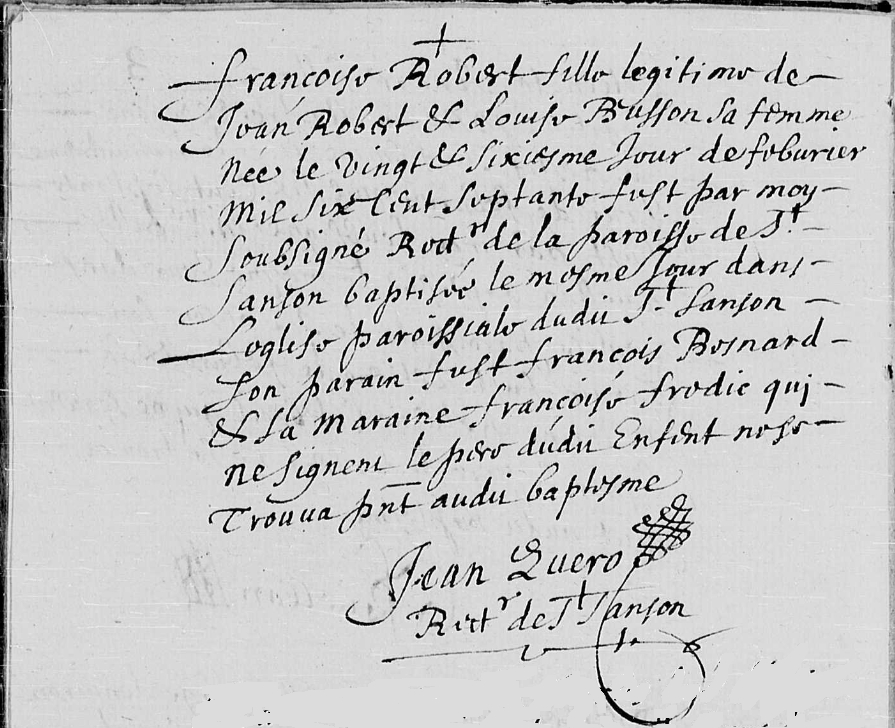 +
françoise Robert fille legitime de
Jean Robert & Louise Busson sa femme
née le vingt & sixiesme Jour de feburier
mil six Cent septante fust par moy
soubsigné Rectr de la paroisse de St
sanson baptisée le mesme Jour dans
Leglise paroissiale dudit St sanson
son parain fust françois Besnard
& sa maraine françoise fredic qui
ne signent le pere dudit Enfent ne se
trouua pnt audit baptesme
Jean Quero
Rectr de St sanson